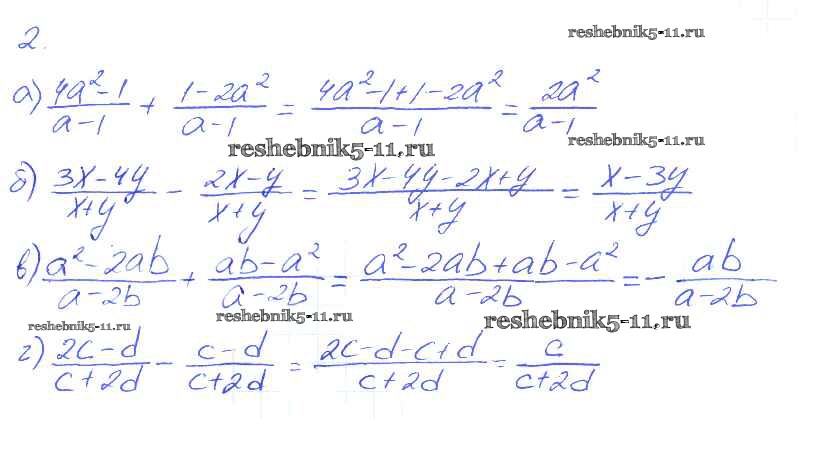 2.
reshebnik5-11.ru
а) (4a²-1)/(a-1) + (1-2a²)/(a-1) = (4a²-1+1-2a²)/(a-1) = 2a²/(a-1)
reshebnik5-11.ru
reshebnik5-11.ru
б) (3x-4y)/(x+y) - (2x-y)/(x+y) = (3x-4y-2x+y)/(x+y) = (x-3y)/(x+y)
в) (a²-2ab)/(a-2b) + (ab-a²)/(a-2b) = (a²-2ab+ab-a²)/(a-2b) = - ab/(a-2b)
reshebnik5-11.ru
reshebnik5-11.ru
reshebnik5-11.ru
г) (2c-d)/(c+2d) - (c-d)/(c+2d) = (2c-d-c+d)/(c+2d) = c/(c+2d)